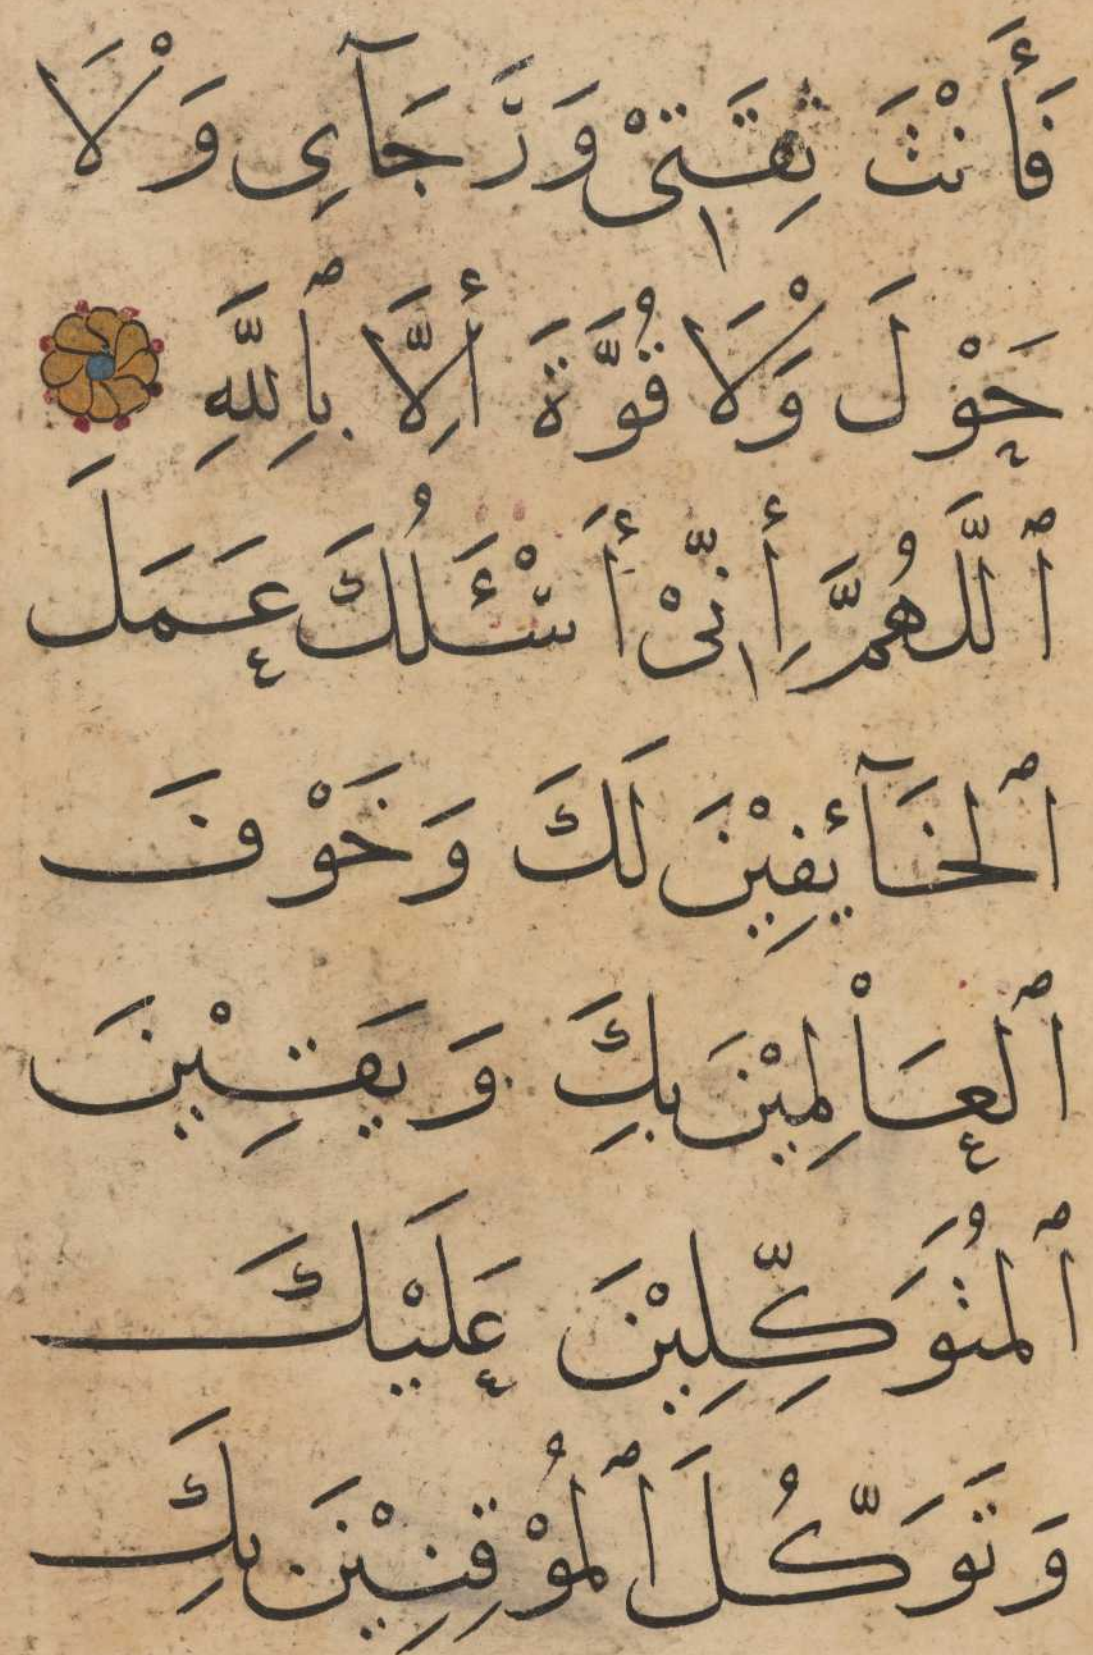 فَأَنْتَ ثِقَتِيْ وَرَجَآءِي وَلَا
حَوْلَ وَلَا قُوَّةَ إِلَّا بِٱللَّهِ
ٱللَّهُمَّ إِنِّيْ أَسْئَلُكَ عَمَلَ
ٱلْخَآئِفِيْنَ لَكَ وَخَوْفَ
ٱلْعَالِمِيْنَ بِكَ وَيَقِيْنَ
ٱلْمُتَوَكِّلِيْنَ عَلَيْكَ
وَتَوَكُّلَ ٱلْمُوْقِنِيْنَ بِكَ